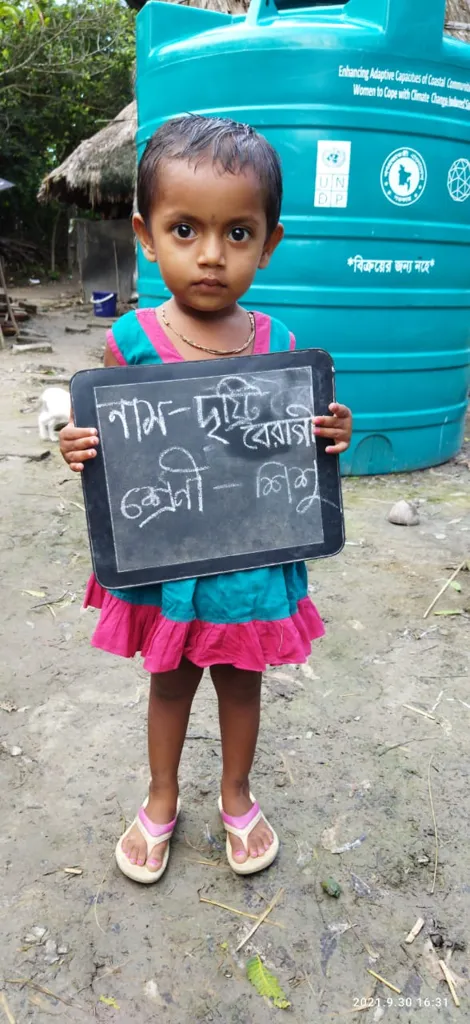 Enhancing Adaptive Capacities of Coastal Communit
Women to Cope with Climate Change Induced Sa
U N
D P
*বিক্রয়ের জন্য নহে*
নাম - দৃষ্টি
বৈরাগী
শ্রেণী - শিশু
2021.9.30 16:31